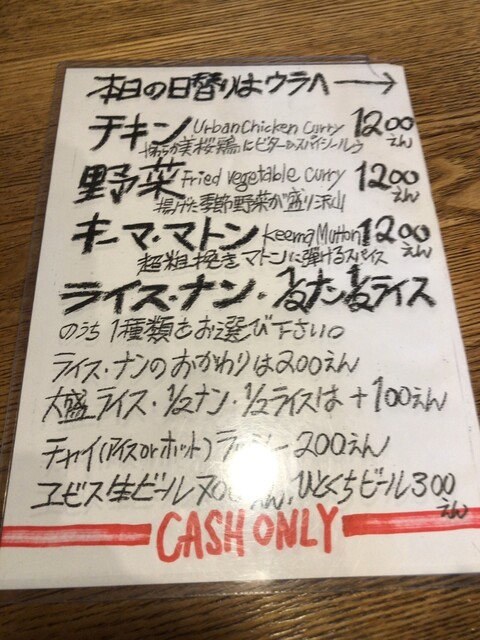 本日の日替りはウラへ→
チキン Urban Chicken Curry 1200えん
柔らか美桜鶏にビターなスパイシールウ
野菜 Fried vegetable curry 1200えん
揚げた季節野菜が盛り沢山
キーマ・マトン Keema Mutton 1200えん
超粗挽きマトンに弾けるスパイス
ライス・ナン・1/2ナン1/2ライス
のうち1種類をお選び下さい。
ライス・ナンのおかわりは200えん
大盛ライス・1/2ナン・1/2ライスは+100えん
チャイ(アイスorホット)ラッシー200えん
ヱビス生ビール700えん、ひとくちビール300えん
CASH ONLY